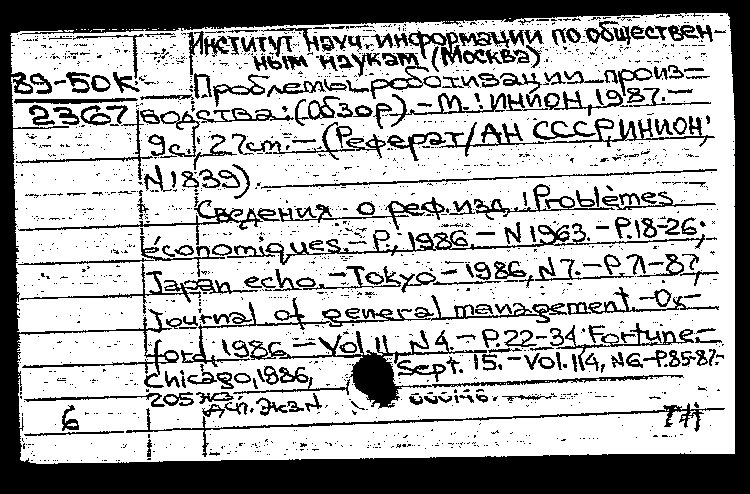 Институт науч. информации по обществен-
ным наукам (Москва).
89-50К
Проблемы роботизации произ-
2367
водства: (Обзор). – М.: ИНИОН, 1987. –
9с.; 27см. – (Реферат/АН СССР, ИНИОН;
N1839).
Сведения о реф. изд.: Problèmes
économiques. – P., 1986. – N1963. – P.18-26;
Japan echo. – Tokyo – 1986, N7. – P.71-87;
Journal of general management. – Ox-
ford, 1986. – Vol.11, N4. – P.22-34; Fortune. –
Chicago, 1986, Sept. 15. – Vol.114, N6. – P.85-87.
205 экз.
Дсп. Экз. N
6